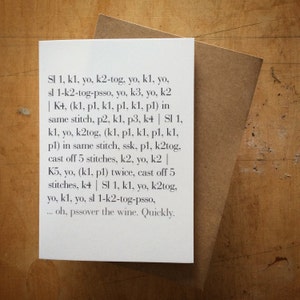 Sl 1, k1, yo, k2-tog, yo, k1, yo,
sl 1-k2-tog-psso, yo, k3, yo, k2
| K4, (k1, p1, k1, p1, k1, p1) in
same stitch, p2, k1, p3, k4 | Sl 1,
k1, yo, k2tog, (k1, p1, k1, p1, k1,
p1) in same stitch, ssk, p1, k2tog,
cast off 5 stitches, k2, yo, k2 |
K5, yo, (k1, p1) twice, cast off 5
stitches, k4 | Sl 1, k1, yo, k2tog,
yo, k1, yo, sl 1-k2-tog-psso,
... oh, pssover the wine. Quickly.